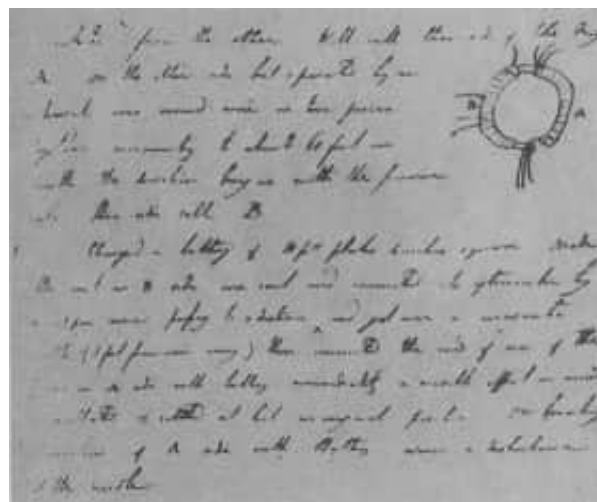 from the other. Will call this side of the ring
A. on the other side but separated by an
interval was wound wire in two pieces
together amounting to about 60 feet in
length the direction being as with the former
this side call B
B A
Charged a battery of 10 pr plates inches square. Made
the coil on B side one coil and connected its extremities by
a copper wire passing to a distance and just over a magnetic
(3 feet from iron ring) then connected the ends of one of the
on A side with battery immediately a sensible effect on needle
settled at last in original position on breaking
connection of A side with Battery again a disturbance
of the needle